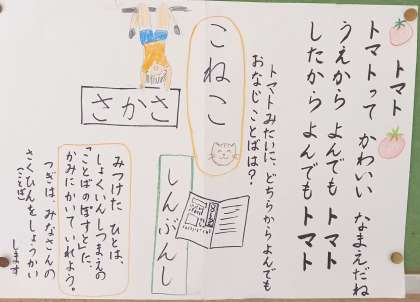 トマト
トマトって かわいい なまえだね
うえから よんでも トマト
したから よんでも トマト
トマトみたいに、どちらからよんでも
おなじことばは？
こねこ
さかさ
しんぶんし
みつけた ひとは、
しょくいんしつまえの
「ことばのぽすと」に、
かみにかいていれよう。
つぎは、みなさんの
さくひんをしょうかい
(ことば)
します